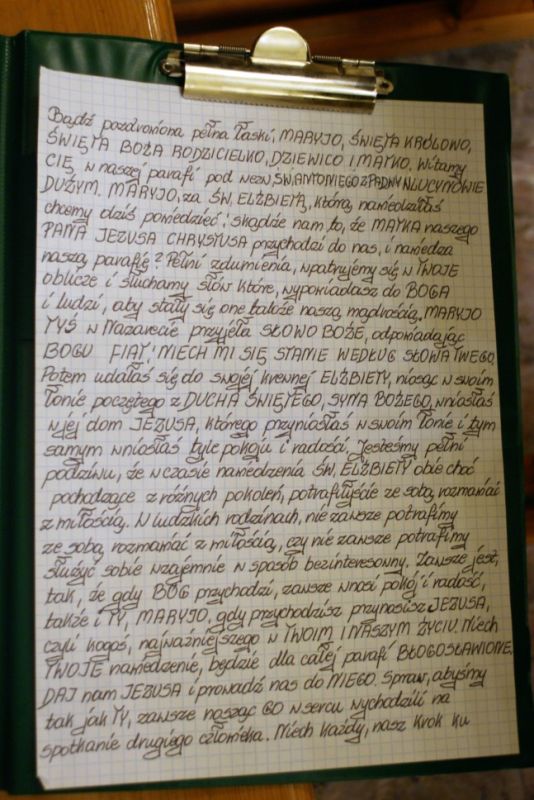 Bądź pozdrowiona pełna łaski, MARYJO, ŚWIĘTA KRÓLOWO,
ŚWIĘTA BOŻA RODZICIELKO, DZIEWICO I MATKO. Witamy
CIĘ w naszej parafi pod wezw. ŚW. ANTONIEGO Z PADWY W LUCYNOWIE
DUŻYM. MARYJO, za ŚW. ELŻBIETĄ, którą nawiedziłaś
chcemy dziś powiedzieć: skądże nam to, że MATKA naszego
PANA JEZUSA CHRYSTUSA przychodzi do nas, i nawiedza
naszą parafię? Pełni zdumienia, wpatrujemy się w TWOJE
oblicze i słuchamy słów które, wypowiadasz do BOGA
i ludzi, aby stały się one także naszą mądrością, MARYJO
TYŚ w Nazarecie przyjęła SŁOWO BOŻE, odpowiadając
BOGU FIAT! NIECH MI SIĘ STANIE WEDŁUG SŁOWA TWEGO.
Potem udałaś się do swojej krewnej ELŻBIETY, niosąc w swoim
łonie poczętego z DUCHA ŚWIĘTEGO, SYNA BOŻEGO, wniosłaś
w jej dom JEZUSA, którego przyniosłaś w swoim łonie i tym
samym wniosłaś tyle pokoju i radości. Jesteśmy pełni
podziwu, że w czasie nawiedzenia ŚW. ELŻBIETY obie choć
pochodzące z różnych pokoleń, potrafiłyście ze sobą rozmawiać
z miłością. W ludzkich rodzinach, nie zawsze potrafimy
ze sobą rozmawiać z miłością, czy nie zawsze potrafimy
służyć sobie wzajemnie w sposób bezinteresowny. Zawsze jest,
tak, że gdy BÓG przychodzi, zawsze wnosi pokój i radość,
także i TY, MARYJO, gdy przychodzisz przynosisz JEZUSA,
czyli kogoś, najważniejszego w TWOIM I NASZYM ŻYCIU. Niech
TWOJE nawiedzenie, będzie dla całej parafi BŁOGOSŁAWIONE.
DAJ nam JEZUSA i prowadź nas do NIEGO. Spraw, abyśmy
tak jak TY, zawsze nosząc GO w sercu wychodzili na
spotkanie drugiego człowieka. Niech każdy, nasz krok ku